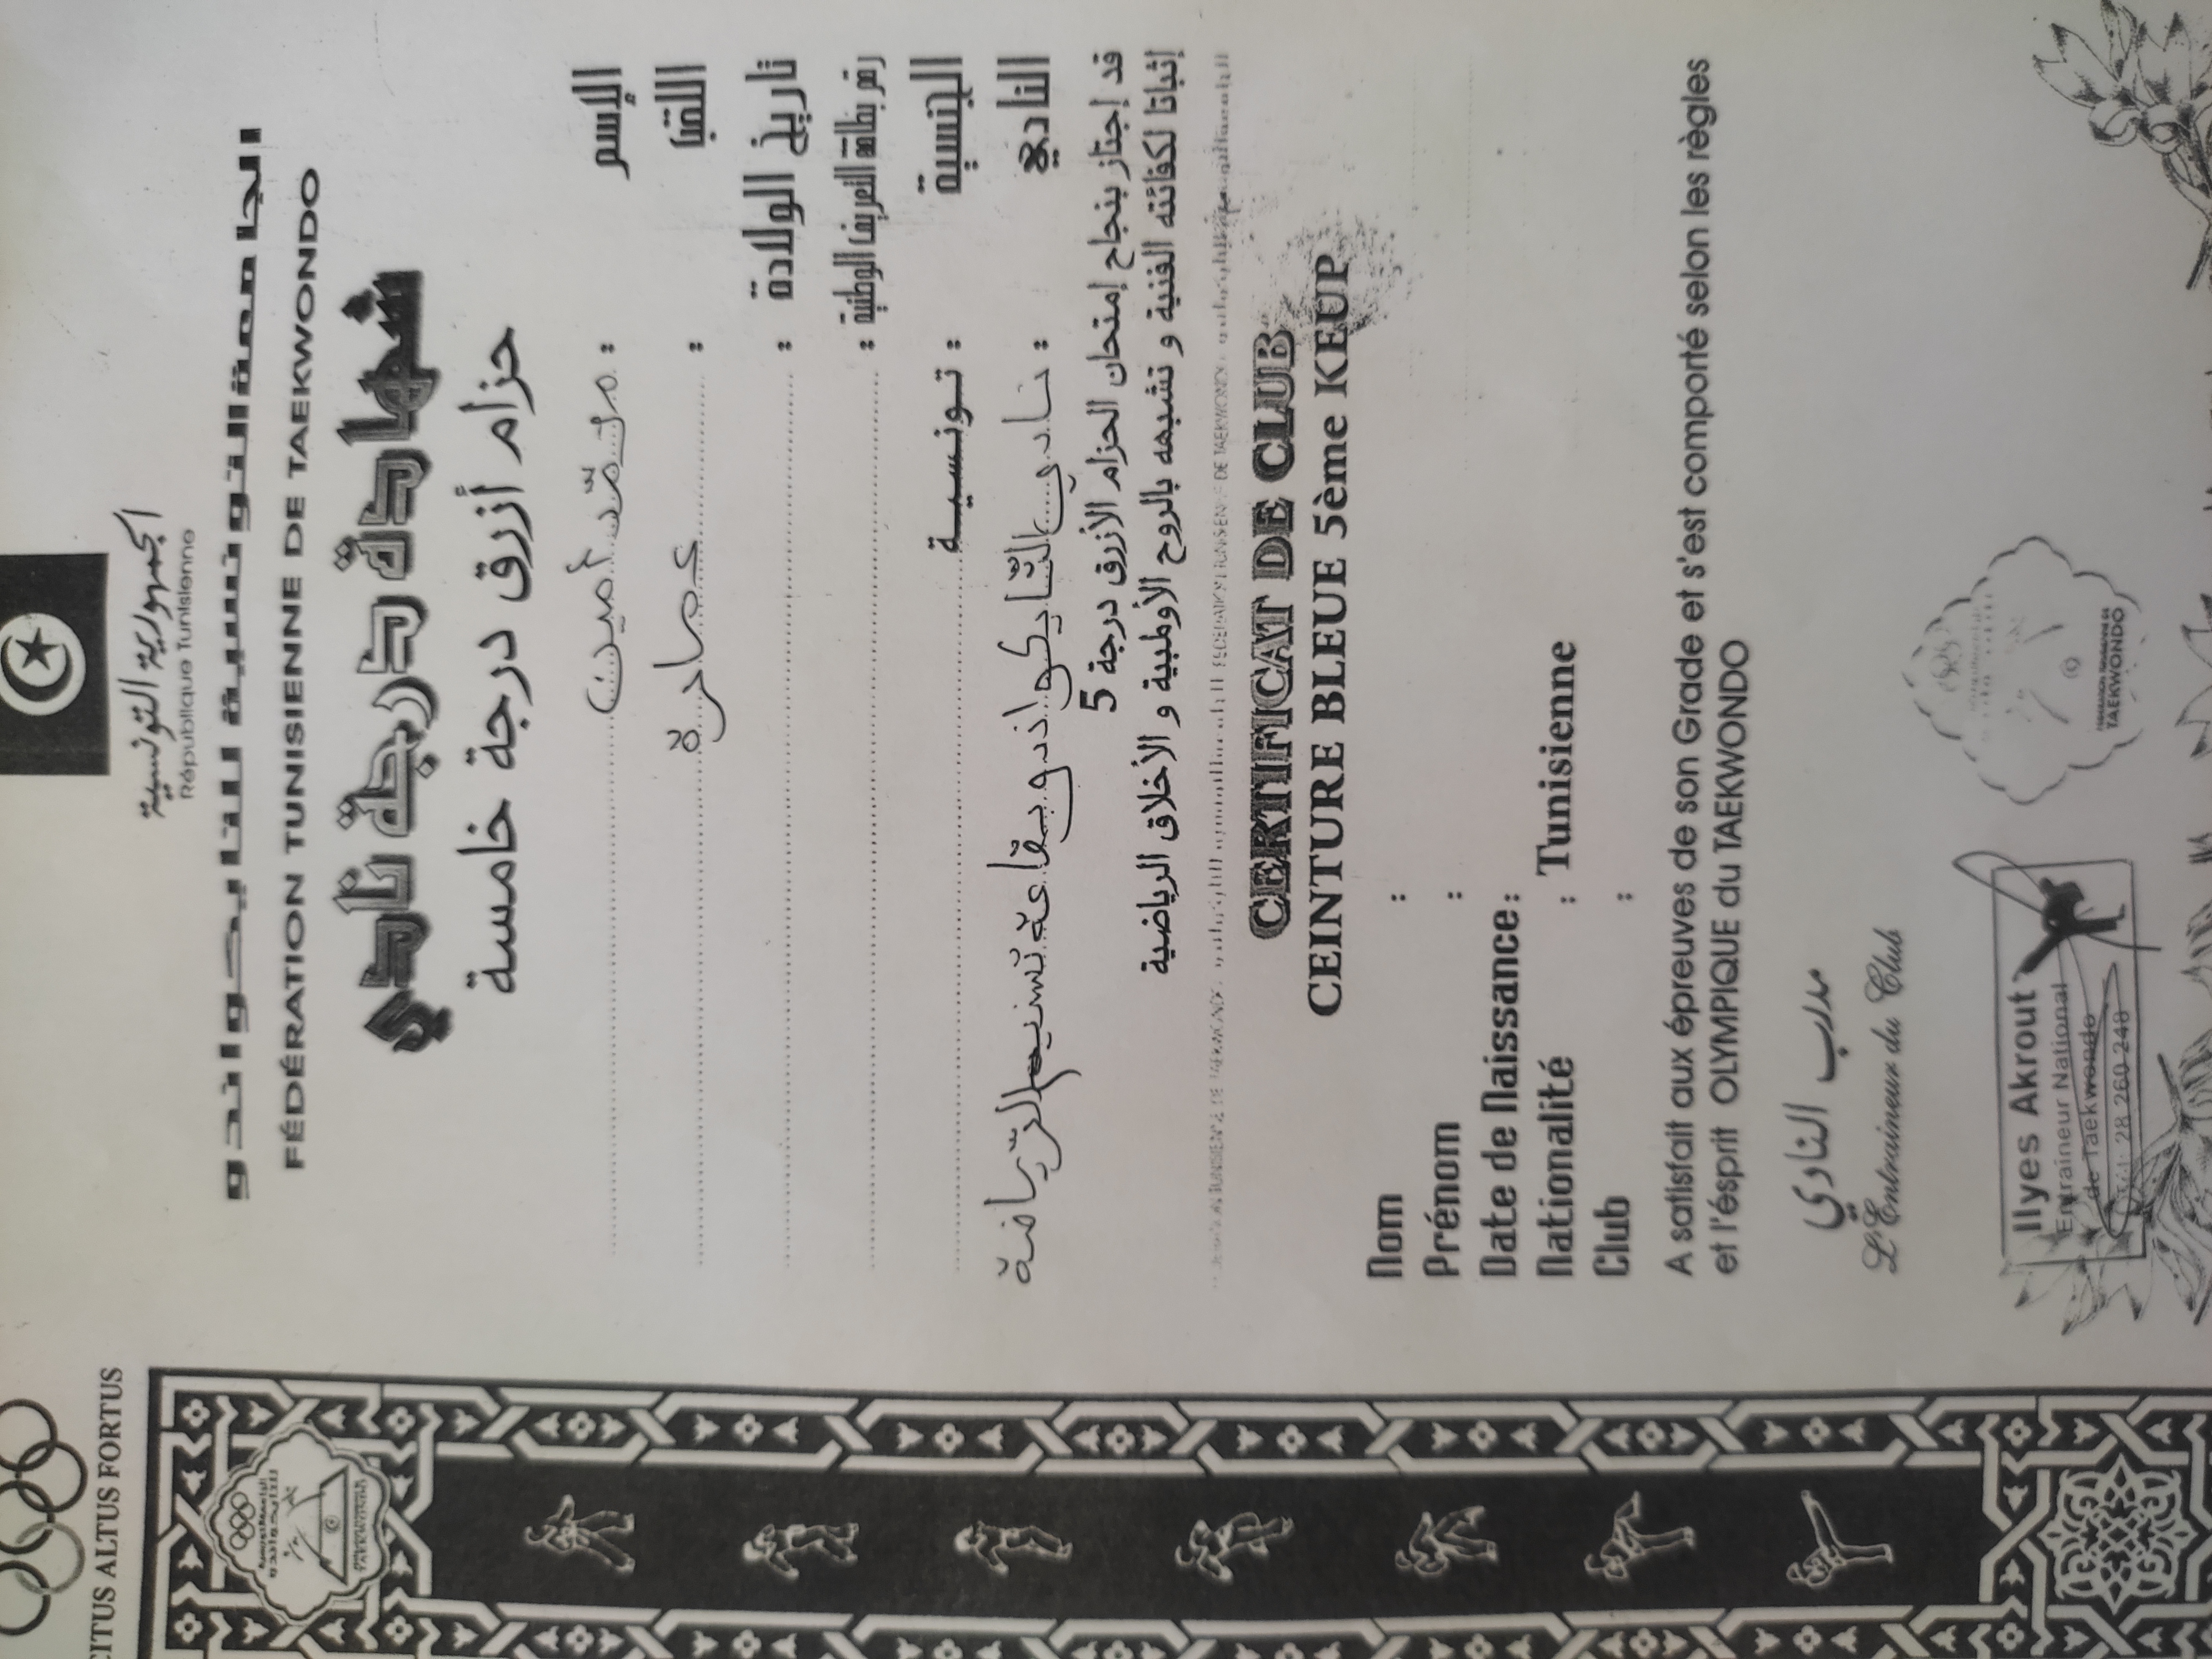 CITUS ALTUS FORTUS
الجمهورية التونسية
République Tunisienne
الجامعة التونسية للتايكواندو
FÉDÉRATION TUNISIENNE DE TAEKWONDO
شهادة درجة نادي
حزام أزرق درجة خامسة
الإسم : محمّد أمين
اللقب : عمارة
تاريخ الولادة :
رقم بطاقة التعريف الوطنية :
الجنسية : تونسية
النادي : نادي التّايكواندو بقاعة نسيم الرّياضة
قد إجتاز بنجاح إمتحان الحزام الأزرق درجة 5
إثباتا لكفائته الفنية و تشبعه بالروح الأولمبية و الأخلاق الرياضية
CERTIFICAT DE CLUB
CEINTURE BLEUE 5ème KEUP
Nom :
Prénom :
Date de Naissance :
Nationalité : Tunisienne
Club :
A satisfait aux épreuves de son Grade et s'est comporté selon les règles
et l'ésprit OLYMPIQUE du TAEKWONDO
مدرب النادي
L'Entraineur du Club
Ilyes Akrout
Entraineur National
de Taekwondo
28 260 248
TAEKWONDO